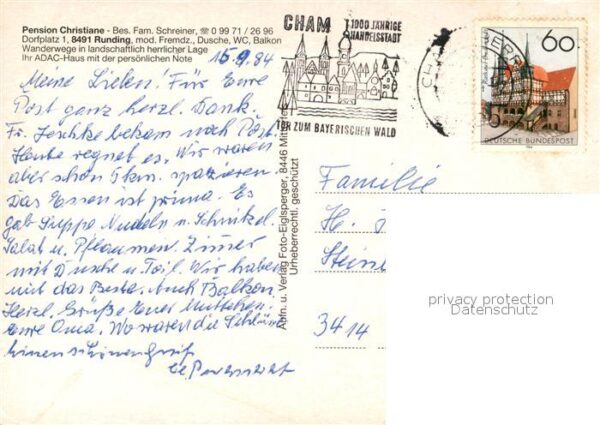 Pension Christiane - Bes. Fam. Schreiner, ☏ 0 99 71 / 26 96
Dorfplatz 1, 8491 Runding, mod. Fremdz., Dusche, WC, Balkon
Wanderwege in landschaftlich herrlicher Lage
Ihr ADAC-Haus mit der persönlichen Note
15.9.84
Meine Lieben! Für Eure
Post ganz herzl. Dank.
Fr. Jeschke bekam noch Post.
Heute regnet es. Wir waren
aber schon 5 km. spazieren.
Das Essen ist prima. Es
gab Suppe Nudeln u. Schinken
Salat u. Pflaumen. Zimmer
mit Dusche u. Toil. Wir haben
mit das Beste. Auch Balkon.
Herzl. Grüße Euer Muttchen
Eure Oma. Wo waren die
einen schönen Gruß
Abfn. u. Verlag Foto-Eiglsperger, 8446
Urheberrechtl. geschützt
CHAM
1000 JÄHRIGE
HANDELSSTADT
TOR ZUM BAYERISCHEN WALD
CH
60
DEUTSCHE BUNDESPOST
Familie
H.
Stein
3414
privacy protection
Datenschutz